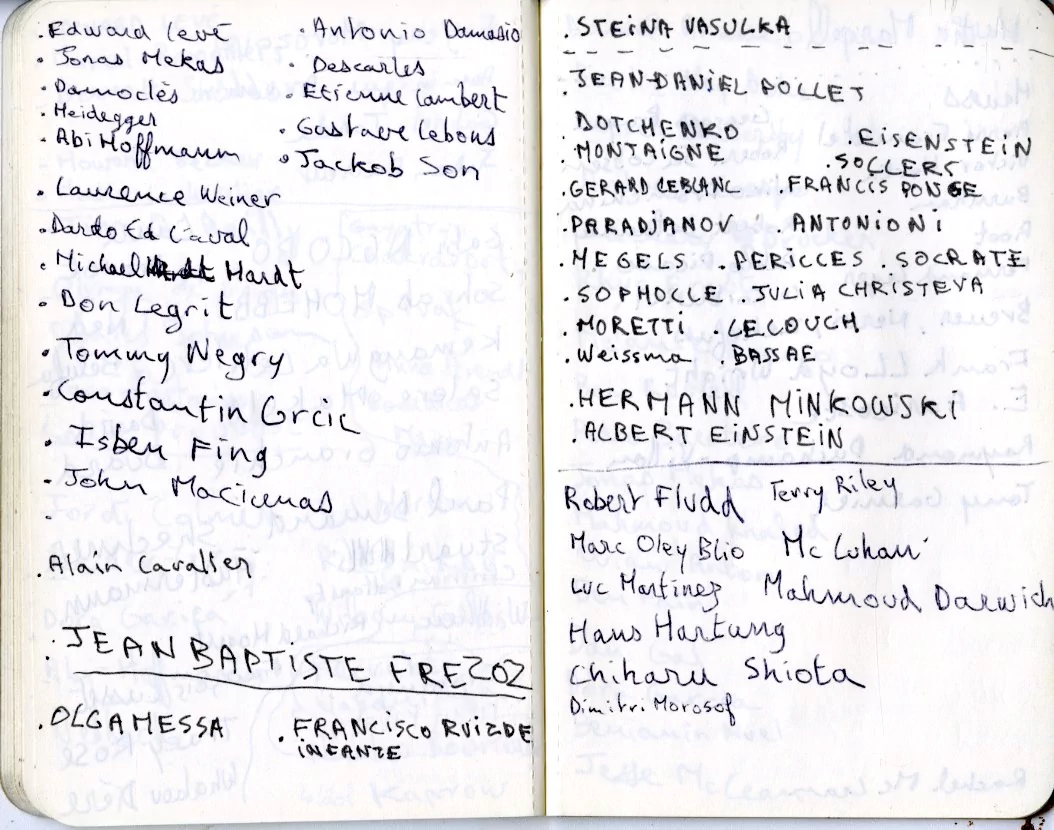 . Edward Levé
. Jonas Mekas
. Damoclès
. Heidegger
. Abi Hoffmann
. Laurence Weiner
. Dardo Ed Caval
. Michael Hardt
. Don Legrit
. Tommy Negry
. Constantin Grcic
. Isben Fing
. John Macicunas
.
. Alain Cavalier
. JEAN BAPTISTE FREZOZ
. OLGA MESSA
. Antonio Damasio
. Descartes
. Etienne Lambert
. Gustave Lebons
. Jackob Son
. FRANCISCO RUIZ DE
INFANTE
. STEINA VASULKA
. JEAN-DANIEL POLLET
. DOTCHENKO
. MONTAIGNE . EISENSTEIN
. SOLLERS
. GERARD LEBLANC . FRANCIS PONGE
. PARADJANOV . ANTONIONI
. HEGELS . PERICLES . SOCRATE
. SOPHOCLE . JULIA CHRISTEVA
. MORETTI . LELOUCH
. Weissma . BASSAE
. HERMANN MINKOWSKI
. ALBERT EINSTEIN
Robert Fludd Terry Riley
Marc Oley Blio Mc Luhan
Luc Martinez Mahmoud Darwich
Hans Hartung
Chiharu Shiota
Dimitri Morosof